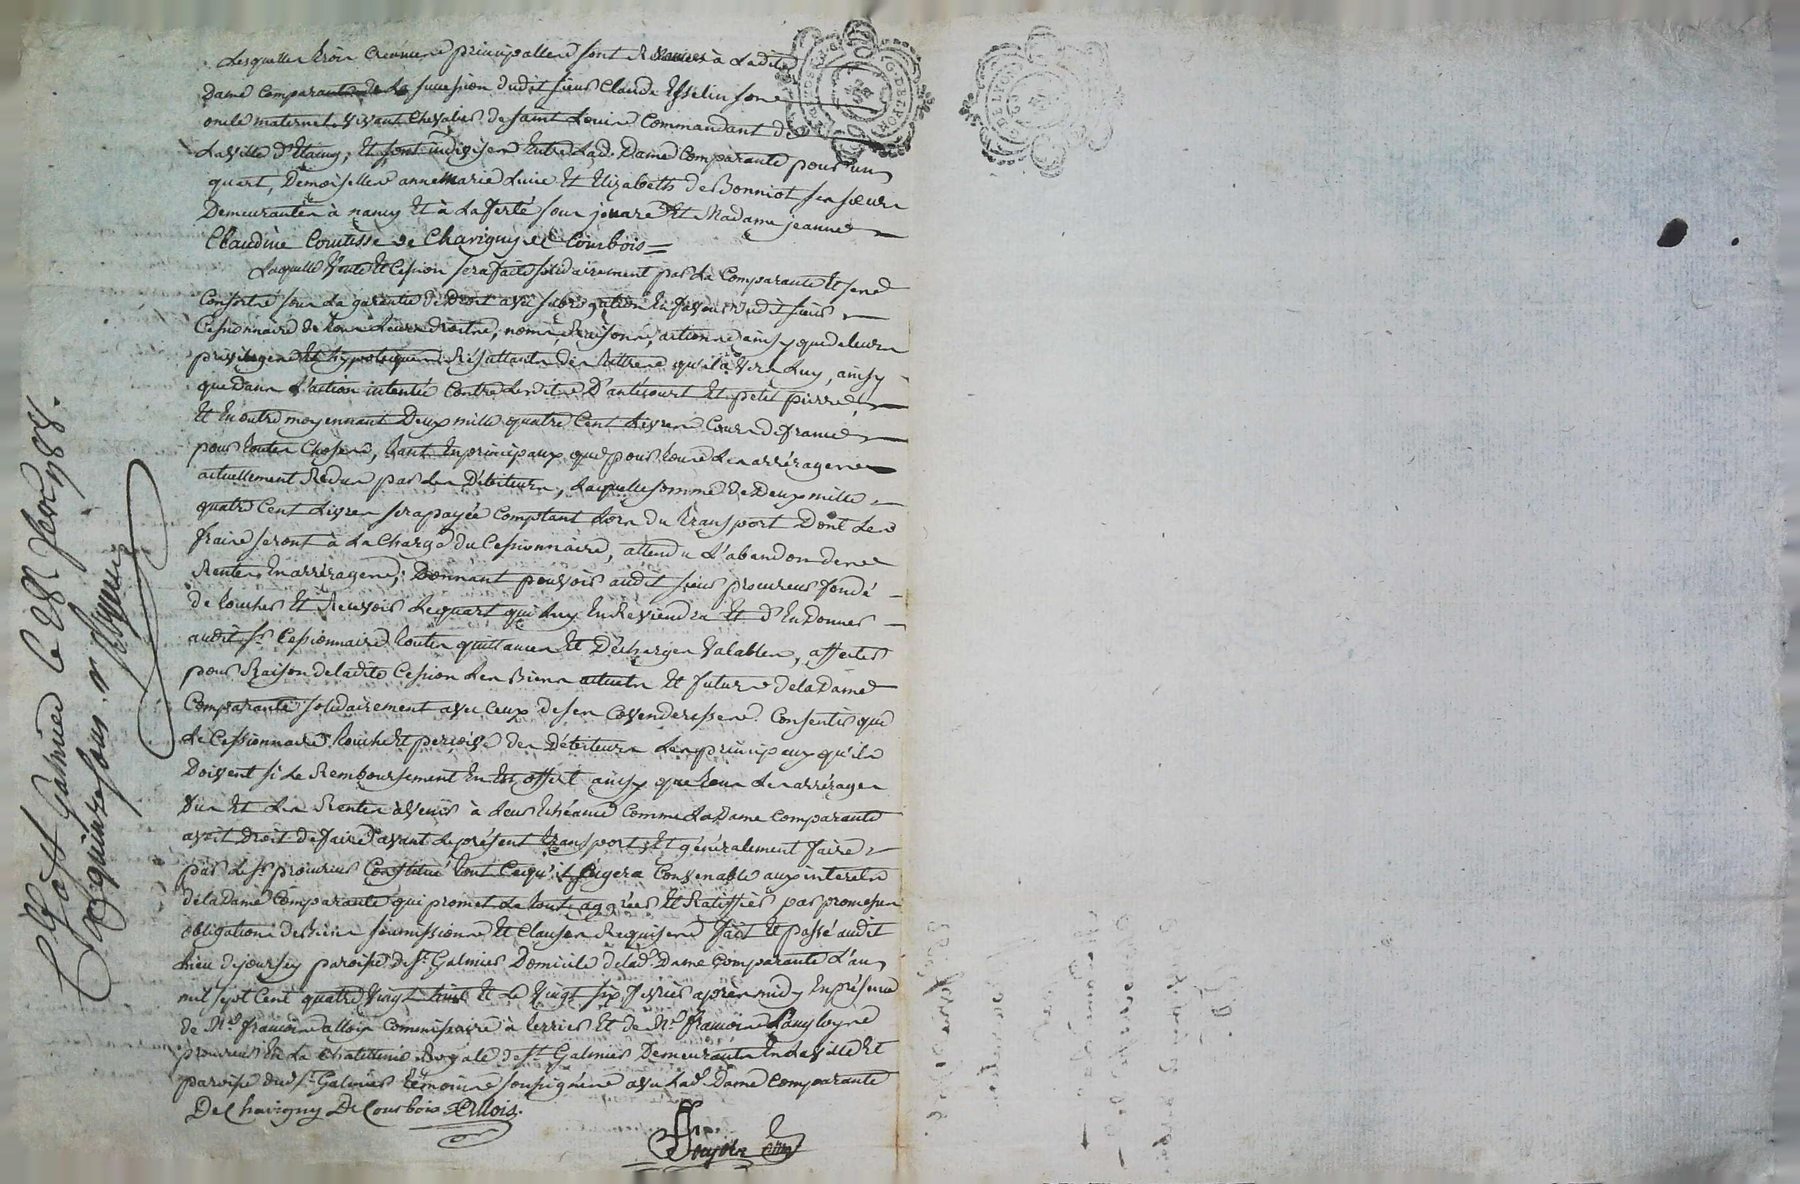 Lesquelles trois Creances principalles sont Revenues à Ladite
Dame Comparante de La succession dudit sieur Claude Esselin son
oncle maternel vivant Chevalier de saint Louis Commandant de
La ville d'Etaing, Et sont indivises Entre Lad. Dame Comparante pour un
quart, Demoiselles anne marie Lucie Et Elizabeth de Bonniot ses sœurs
Demeurantes à nancy Et à La ferté sous jouare Et Madame jeanne
Claudine Comtesse de Chavigny de Courbois
Laquelle Vente Et Cession sera faite solidairement par La Comparante Et ses
Consorts sous La garantie de Droit avec subrogation En faveur dudit sieur
Cessionnaire de tous Leurs droits, noms, Raisons, actions ainsy que de leurs
privileges Et hypoteques Résultants des titres qu'il a Vers Luy, ainsy
que dans L'action intentée Contre Les dits D'anticourt Et petit pierre,
Et En outre moyennant Deux mille quatre Cent Livres Cours de france
pour toutes Choses, tant En principaux que pour tous Les arrérages
actuellement Redus par Les Débiteurs, Laquelle somme de Deux mille
quatre Cent Livres sera payée Comptant Lors du transport Dont Les
fraix seront à La Charge du Cessionnaire, attendu L'abandon des
Rentes En arrérages; Donnant pouvoir audit sieur procureur fondé
de toucher Et Recevoir Le quart qui Luy En Reviendra Et D'En Donner
audit Sr. Cessionnaire toutes quittances Et Décharges Valables, affecter
pour Raison de ladite Cession Les Biens actuels Et futurs de la Dame
Comparante solidairement avec Ceux de ses Covenderesses. Consentir que
Le Cessionnaire touche Et perçoive des Débiteurs Les principaux qu'ils
Doivent si Le Remboursement En Est offert ainsy que tous Les arrérages
dus Et Les Rentes à Venir à Leur Echéance Comme La Dame Comparante
avoit Droit de faire avant Le présent transport, Et généralement faire
par Le Sr. procureur Constitué tout Ce qu'il jugera Convenable aux interets
de la Dame Comparante qui promet de tout aggréer Et Ratiffier par promesses
obligations de Biens soumissions Et Clauses Requises fait Et passé audit
Lieu de joursey paroisse de St. Galmier Domicile de lad. Dame Comparante L'an
mil sept Cent quatre Vingt huit Et Le Vingt six fevrier après midy En présence
de Me. françois allois Commissaire à terrier Et de Me. françois Langlogne
procureur En La Chatellenie Royale de St. Galmier Demeurants En La ville Et
paroisse dud. St. Galmier témoins soussignés avec Lad. Dame Comparante
De Chavigny De Courbois. Allois.
G. DE LYON
G. DE LYON
quinze sous